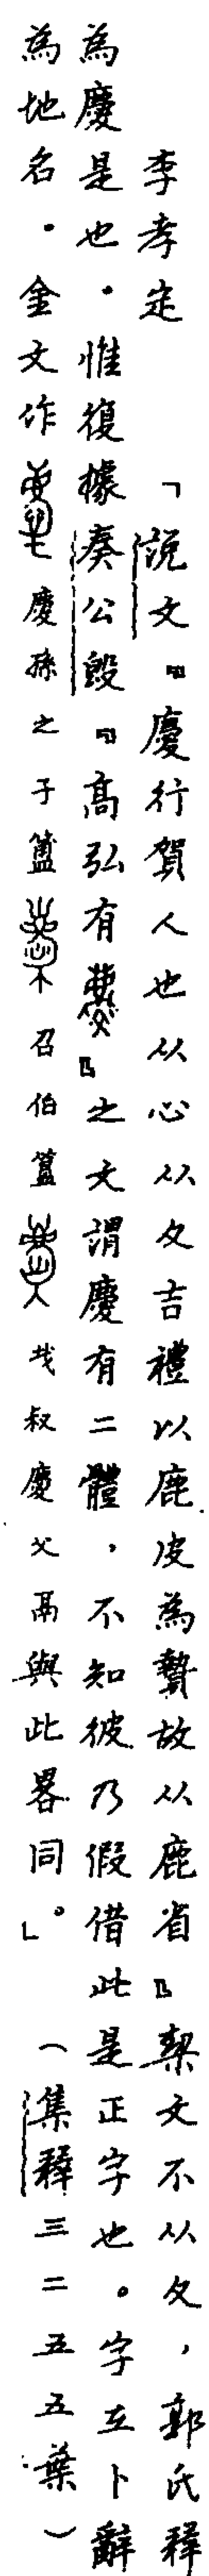 李孝定「說文『慶行賀人也从心从夊吉禮以鹿皮為贄故从鹿省』栔文不从夊，郭氏釋
為慶是也．惟復據秦公𣪘『高弘有』之文謂慶有二體，不知彼乃假借此是正字也。字在卜辭
為地名．金文作慶孫之子簠召伯簋𢦏叔慶父鬲與此畧同。」（集釋三二五五葉）